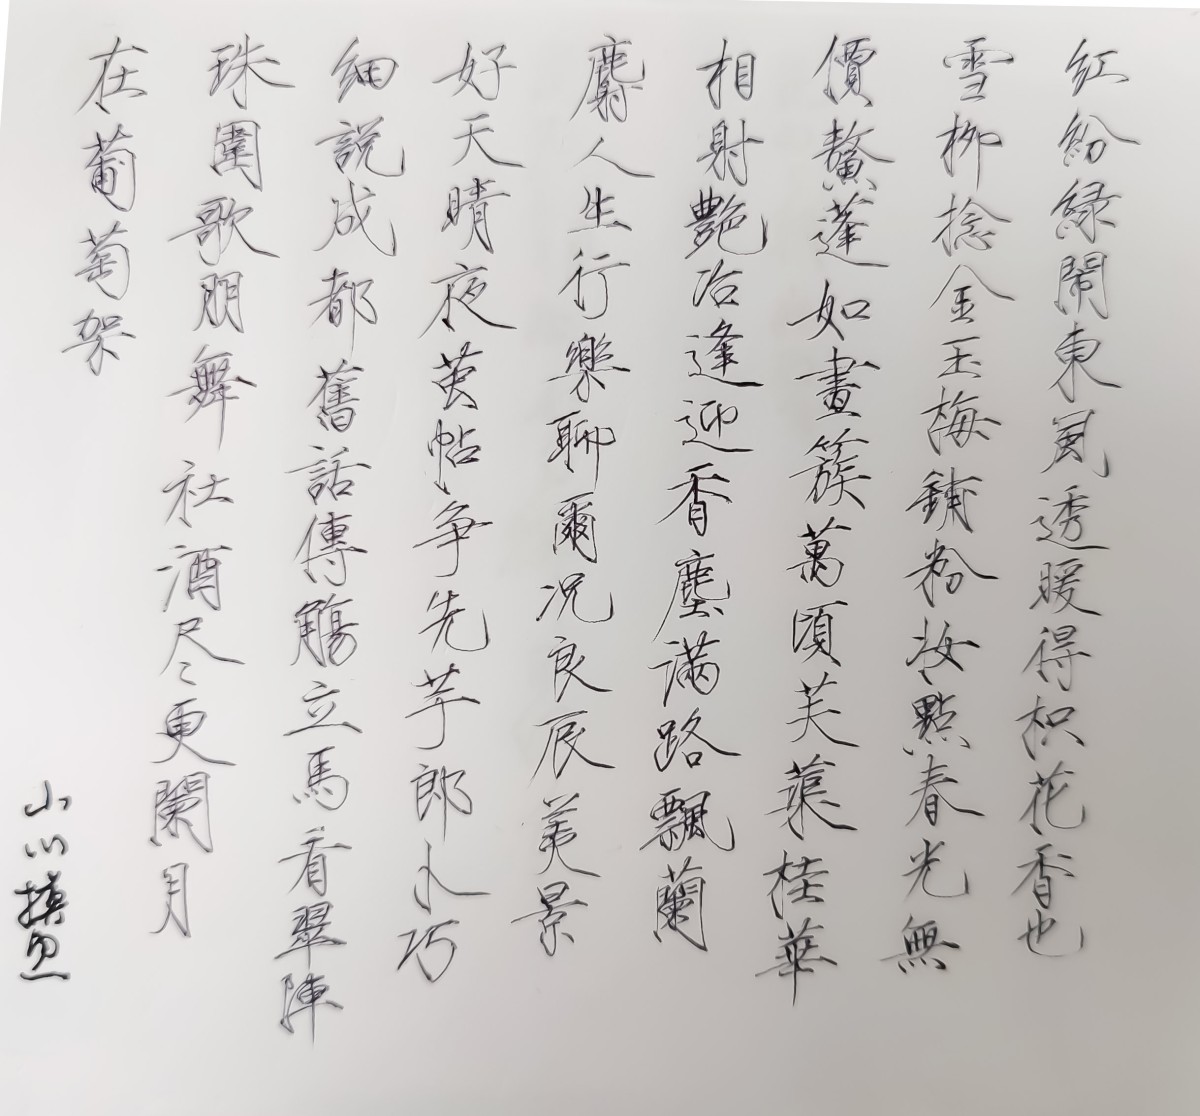 紅紛緑閙東風透暖得枳花香也
雪柳捻金玉梅鋪粉妝點春光無
價鰲蓬如畫簇萬頃芙蕖桂華
相射艷冶逢迎香塵満路飄蘭
麝人生行樂聊爾况良辰美景
好天晴夜萤帖争先芋郎卜巧
細説成都舊話傳觴立馬看翠陣
珠圍歌朋舞社酒尽更闌月
在葡萄架